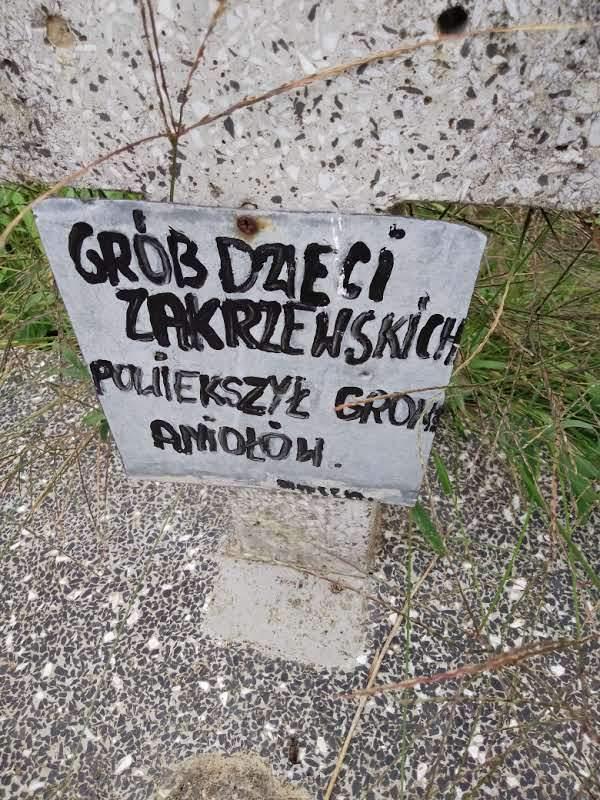 GRÓB DZIECI
ZAKRZEWSKICH
POWIEKSZYŁ GRONO
ANIOŁÓW.